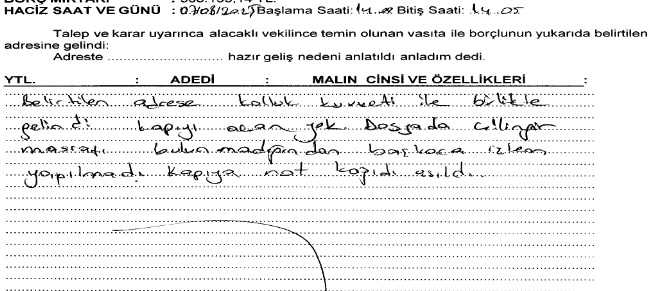 HACİZ SAAT VE GÜNÜ : 07/08/2025 Başlama Saati: 14.00 Bitiş Saati: 14.05
Talep ve karar uyarınca alacaklı vekilince temin olunan vasıta ile borçlunun yukarıda belirtilen
adresine gelindi:
Adreste ........................... hazır geliş nedeni anlatıldı anladım dedi.
YTL. : ADEDİ : MALIN CİNSİ VE ÖZELLİKLERİ :
Belirtilen adrese kolluk kuvveti ile birlikte
gelindi kapıyı açan yok Dosyada çilingir
masrafı bulunmadığından başkaca işlem
yapılmadı kapıya not kağıdı asıldı.